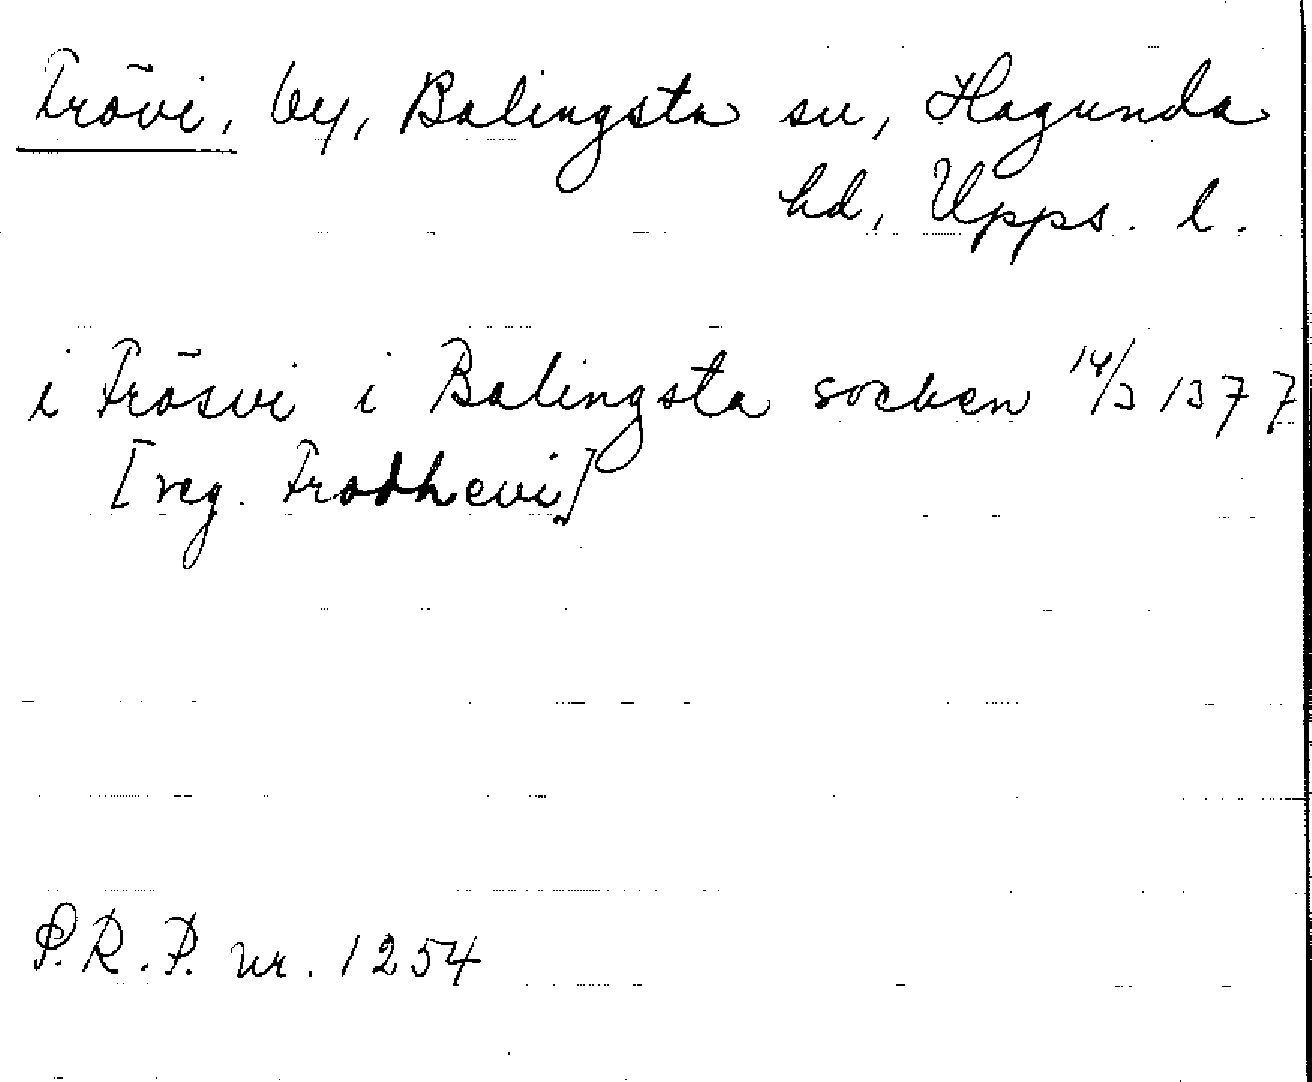 Frövi, by, Balingsta sn, Hagunda
hd, Upps. l.
i Frösvi i Balingsta socken 14/3 1377
[reg. Frodhevi]
P.R.P. nr. 1254